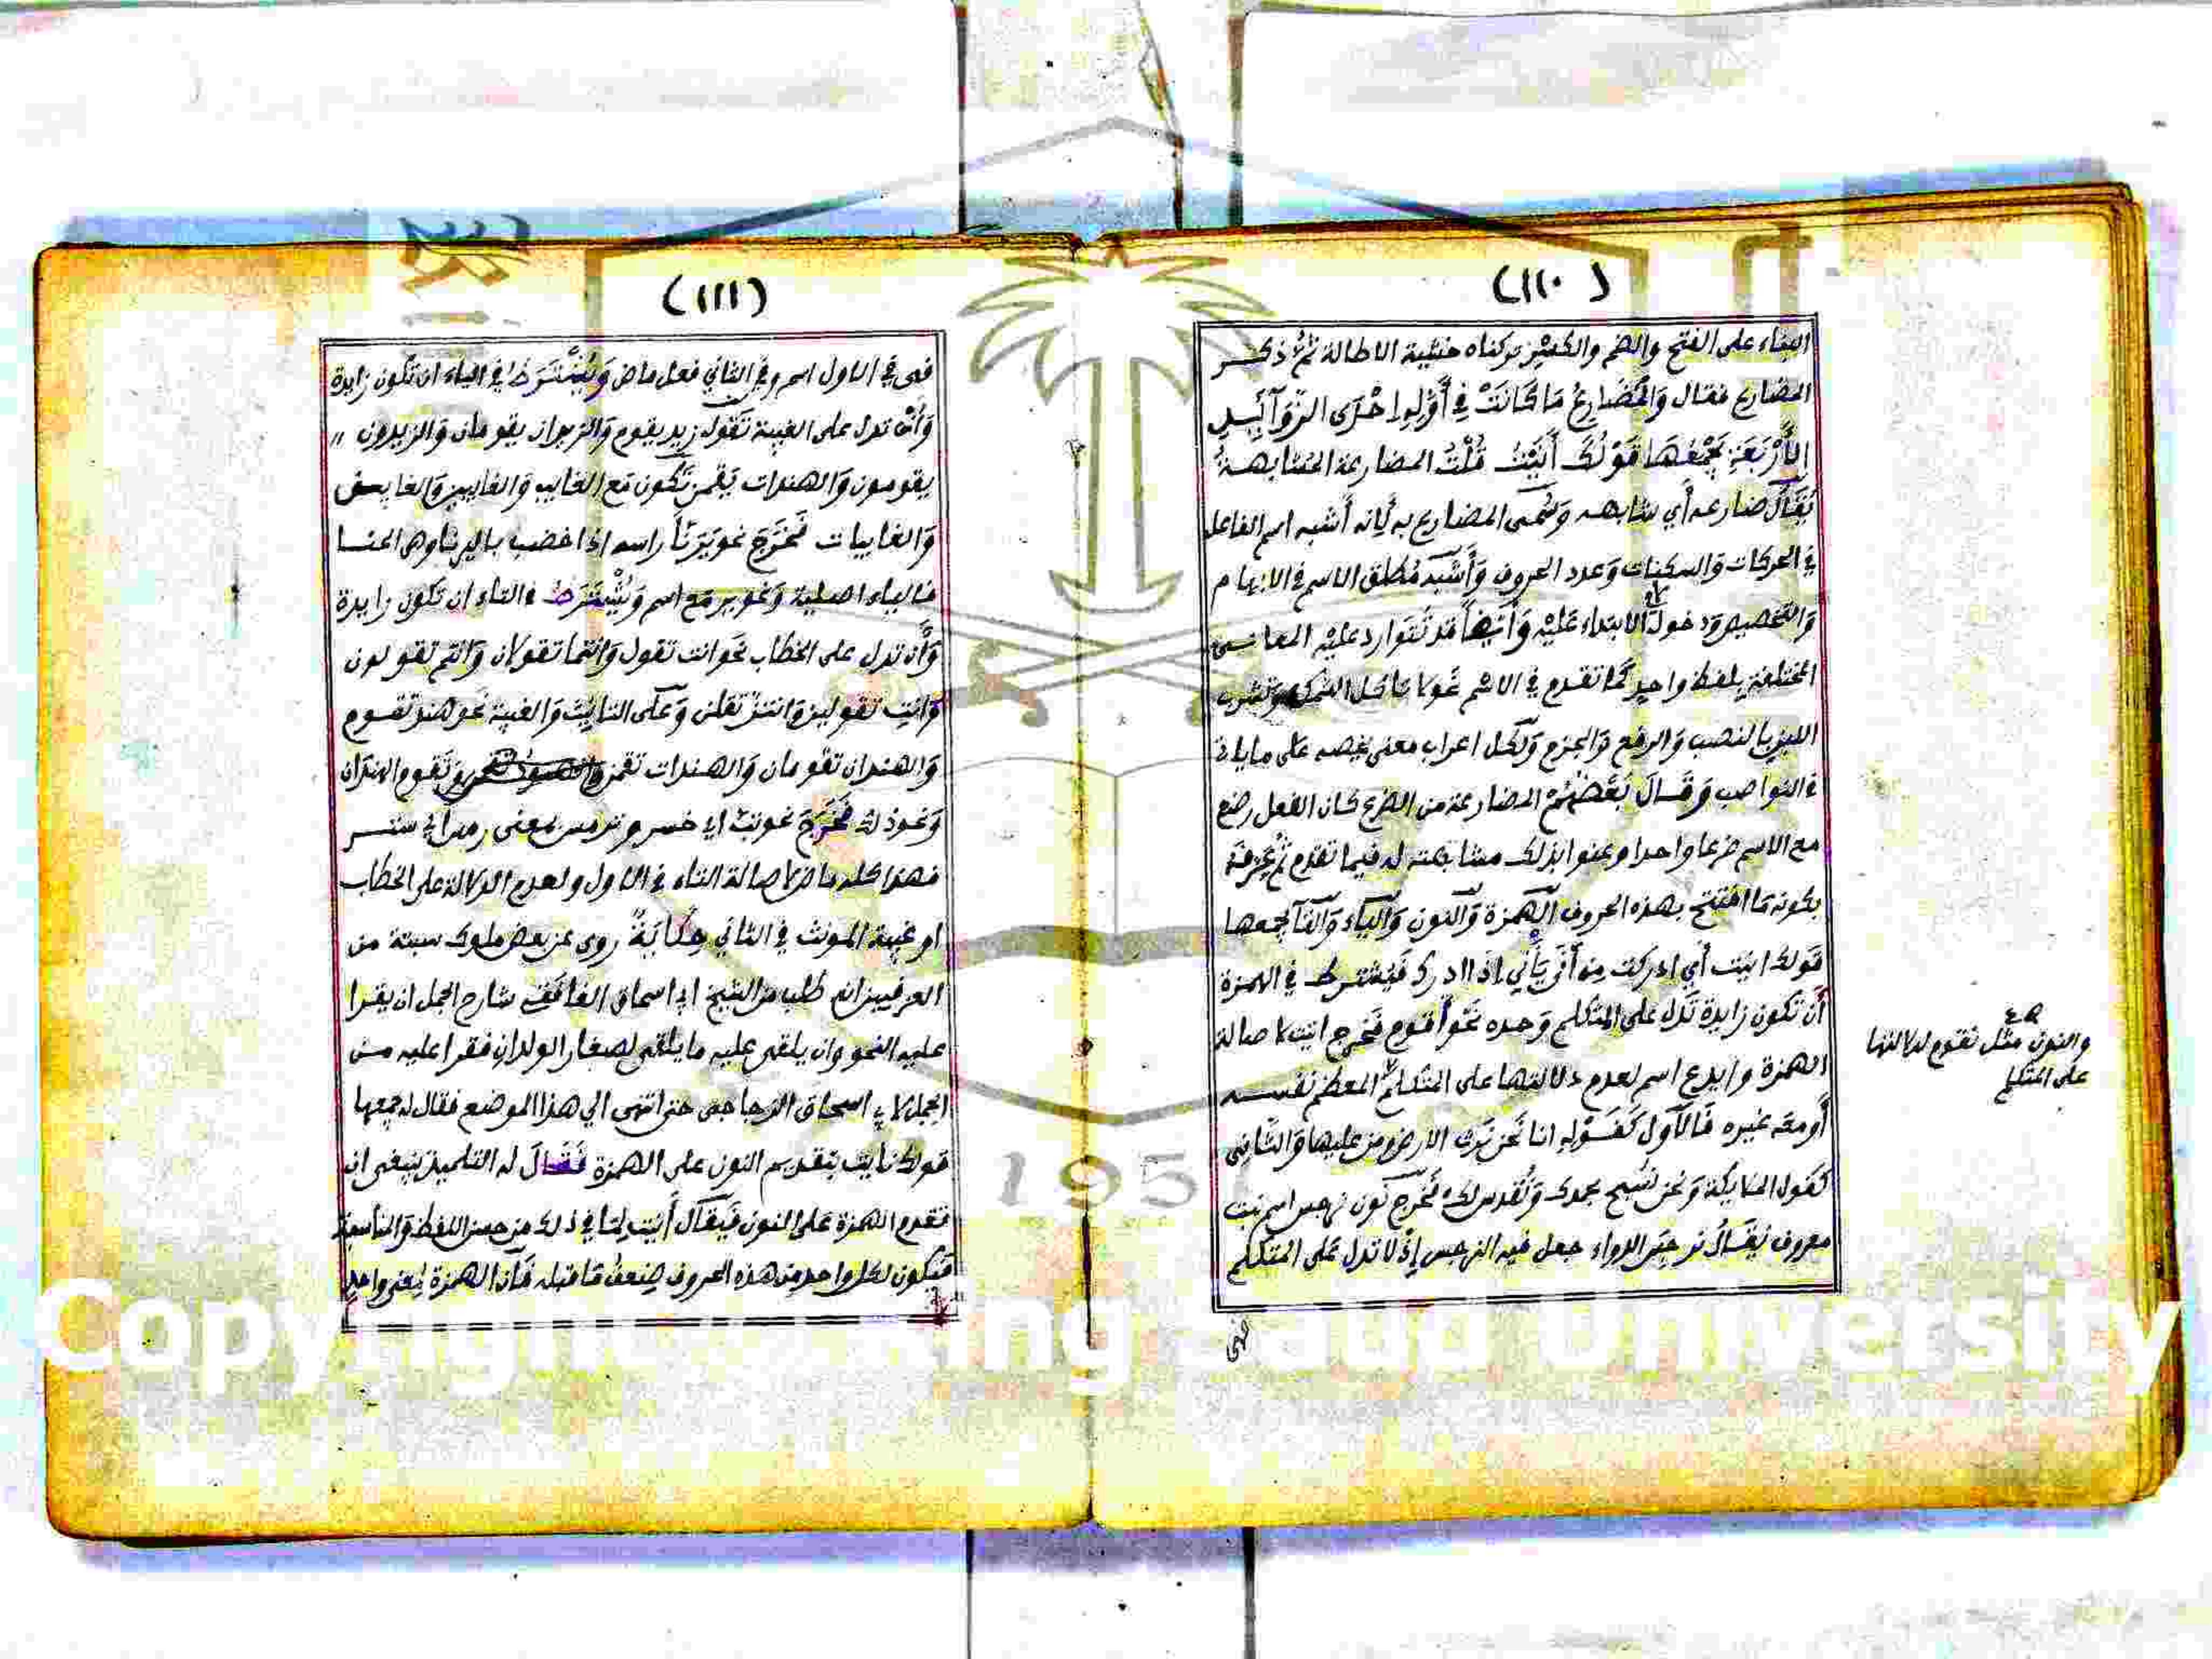 (١١٠)
البناء على الفتح والضم والكسر تركناه خشية الاطالة ثم ذكر
المضارع فقال وَالمُضَارِعُ مَا كَانَتْ فِي أَوَّلِهِ إِحْدَى الزَّوَآئِدِ
الأَرْبَعَةِ يَجْمَعُهَا قَوْلُكَ أَنَيْتُ قُلْتُ المضارعة المشابهة
يُقَالُ ضارعه أي شابهه وَسُمي المضارع به لأنه أشبه اسم الفاعل
في الحركات والسكنات وَعدد الحروف وَأشبه مُطلق الاسم في الابهام
وَالتخصيص ودخول لام الابتداء عَلَيْهِ وَأَيضاً قد تَتَوارد عليْه المعاني
المختلفة بلفظ واحد كَما تقدم في الاسم نحو لا تاكل السمك وتشرب
اللبن بالنصب وَالرفع وَالجزم وَلكل اعراب معنى يخصه عَلى ما ياتي
في النواصب وَقَالَ بَعْضُهُمْ المضارعة من الضرع كان الفعل رضع
مع الاسم ضرعا واحدا وعنوا بذلك مشابهته له فيما تقدم ثم عرفه
بكونه مَا افتتح بهذه الحروف الهمزة وَالنون وَالياء وَالتا يجمعها
قَولك انيت أي ادركت من أَنَى يَأْنِي إذا ادرك فَيُشترط في الهمزة
أَن تكون زايدة تَدل على المتكلم وَحده نَحْو أَقوم فَخرج انيت لاصالة
الهمزة وايدع اسم لعدم دلالتها على المتكلم المعظم نفسه
أَو معَه غيره فَالأَول كَقَوْلِهِ انا نَحن نَرث الارض ومن عليها وَالثاني
كقَول الملايكة وَنحن نسَبح بحمدك وَنُقدس لك فَخَرج نَون نرجس اسم نبت
معروف يُقَالُ نرجَس الدواء جعل فيه النرجس إِذْ لا تدل عَلى المتكلم
فهى
صح
والنون مثل نقوم لدلالتها
على المتكلم
(١١١)
فهى في الاول اسم وفي الثاني فعل ماض وَيُشْتَرَطُ في الياء ان تكون زايدة
وَأَن تدل على الغيبة تَقول زيد يقوم وَالزيدان يقومان وَالزيدون
يقومون وَالهندات يَقُمن تَكُون مَع الغايب وَالغايبين وَالغايبين
وَالغايبات فَخَرَجَ نحو يَرْنَأَ راسه اذا خضب باليرنا وهو الحنا
فالياء اصلية وَنحو يرمع اسم وَيُشْتَرَطُ في التاء ان تكون زايدة
وَأَن تدل على الخطاب نحَو انت تقول وَانتما تقولان وَانتم تقولون
وَانتِ تقولين وَانتن تقلن وَعَلَى التانيث وَالغيبة نحو هند تقوم
وَالهندان تقومان وَالهندات تقمن وَتَقوم الهندان
وَنحو ذلك فَخَرَجَ نحو تبّ اي خسر و ترمس بمعنى رمس اي ستر
فهذا كله ماض لاصالة التاء في الاول ولعدم الدلالة على الخطاب
او غيبة المونث في الثاني حِكَايَةٌ روى عن بعض ملوك سبتة من
العزفيين انه طلب من الشيخ ابي اسحاق الغافقي شارح الجمل ان يقرا
عليه النحو وان يلقى عليه ما يلقى لصغار الولدان فقرا عليه من
الجمل لابي اسحاق الزجاجي حتى انتهى الي هذا الموضع فقال له يجمعها
قولك نايت بتقديم النون على الهمزة فَقَالَ له التلميذ ينبغي ان
تقدم الهمزة عَلى النون فَيقال أَنيت لِمَا في ذلك من حسن اللفظ وَالمناسبة
فَيكون لكل واحد من هذه الحروف ضِعفُ مَا قبله فَأن الهمزة لمعنى واحد
Copyright © King Saud University
195